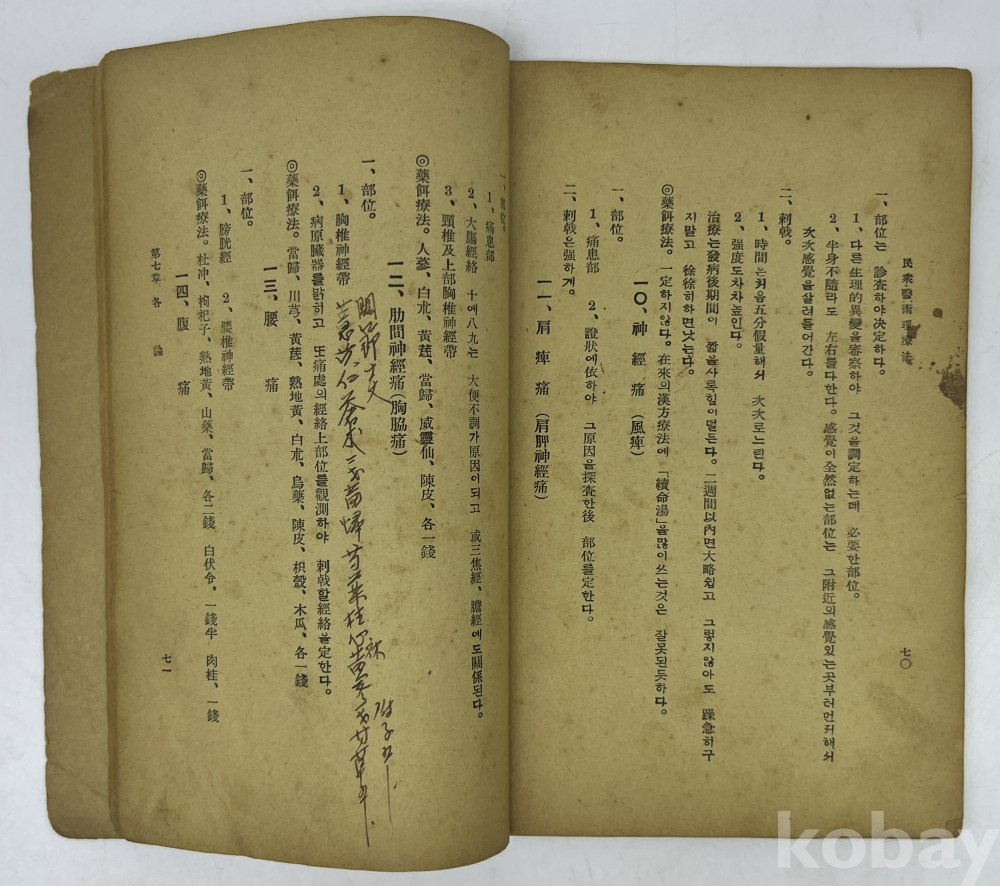 民衆醫術理療法
七〇
一、部位는 診査하야決定하다。
1、다른生理的異變을審察하야 그것을調定하는데 必要한部位。
2、半身不隨라도 左右를다한다。感覺이全然없는部位는 그附近의感覺있는곳부러먼저해쇠
次次感覺을살려들어간다。
二、刺戟。
1、時間은처음五分假量해쇠 次次로느린다。
2、强度도차차높인다。
治療는發病後期間이 짧을사록힘이덜든다。二週間以內면大略쉽고 그렇지않아도 躁急히구
지말고 徐徐히하면낫는다。
◎藥餌療法。一定하지않다。在來의漢方療法에「續命湯」을많이쓰는것은 잘못된듯하다。
一〇、神經痛(風痺)
一、部位。
1、痛患部 2、證狀에依하야 그原因을探査한後 部位를定한다。
二、刺戟은强하게。
一一、肩痺痛(肩胛神經痛)
一、部位。
1、痛患部
2、大腸經絡 十에八九는 大便不調가原因이되고 或三焦經、膽經에도關係된다。
3、頸椎及上部胸椎神經帶
◎藥餌療法。人蔘、白朮、黃芪、當歸、威靈仙、陳皮、各一錢
一二、肋間神經痛(胸脇痛)
一、部位。
1、胸椎神經帶
2、病原臟器를밝히고 또痛處의經絡上部位를觀測하야 刺戟할經絡을定한다。
◎藥餌療法。當歸、川芎、黃芪、熟地黃、白朮、烏藥、陳皮、枳殼、木瓜、各一錢
一三、腰痛
一、部位。
1、膀胱經 2、腰椎神經帶
◎藥餌療法。杜冲、枸杞子、熟地黃、山藥、當歸、各二錢 白伏令、一錢半 肉桂、一錢
一四、腹痛
第七章 各論
七一
kobay